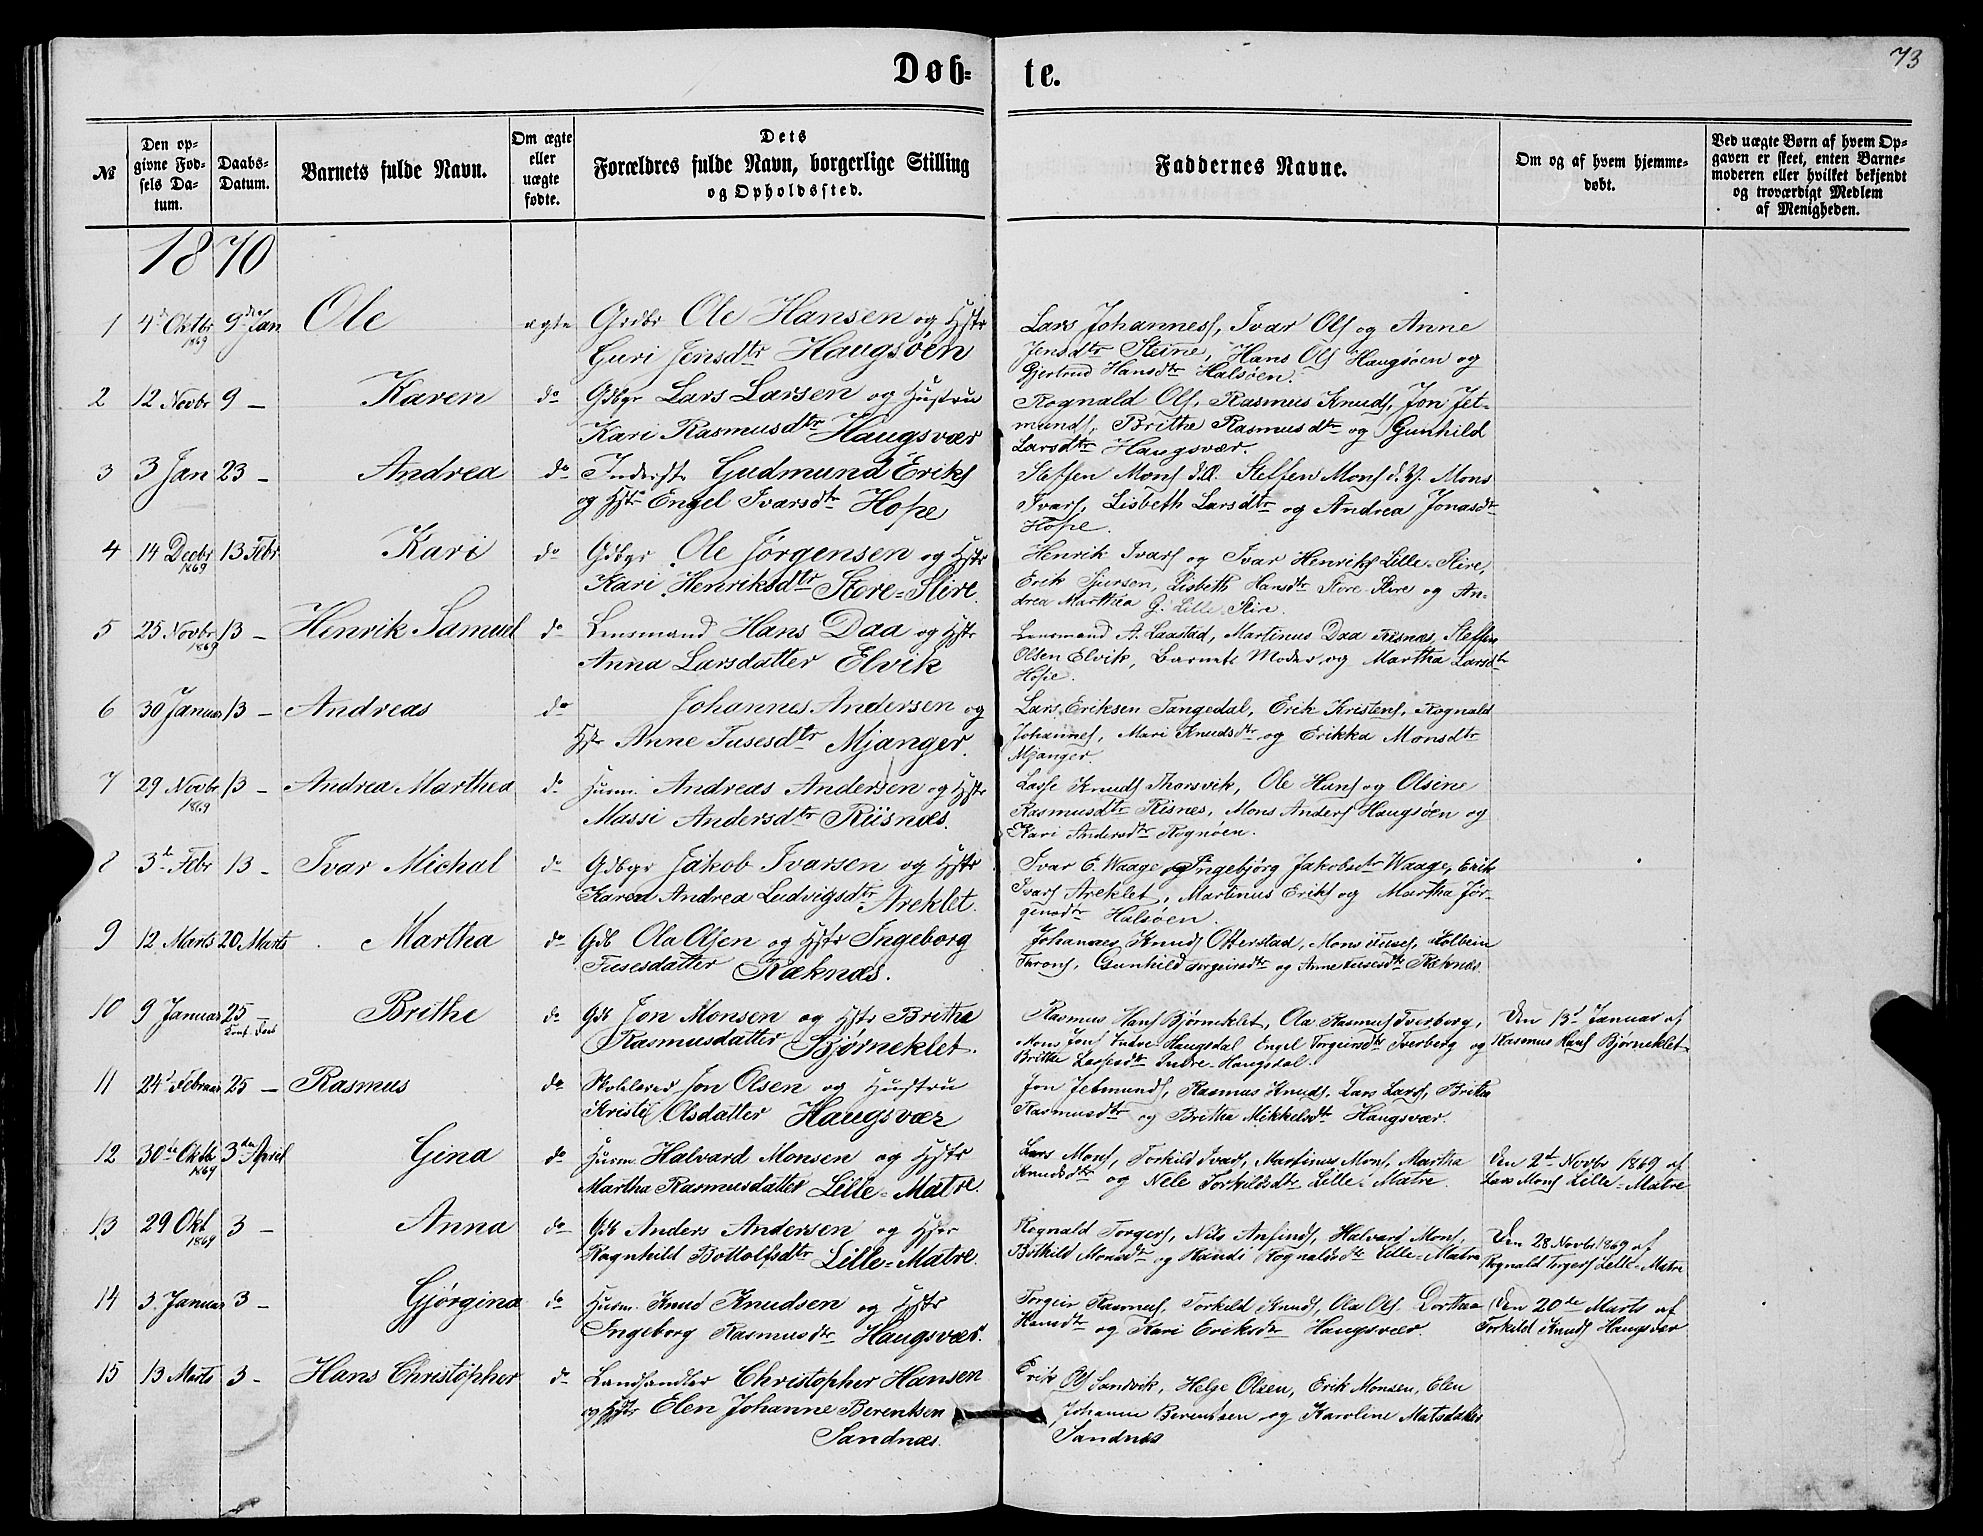 73
Døb- te.
№
Den opgivne Fødsels Datum.
Daabs-Datum.
Barnets fulde Navn.
Om ægte eller uægte fødte.
Dets Forældres fulde Navn, borgerlige Stilling og Opholdssted.
Faddernes Navne.
Om og af hvem hjemmedøbt.
Ved uægte Børn af hvem Opgaven er skeet, enten Barnemoderen eller hvilket bekjendt og troværdigt Medlem af Menigheden.
1870
1 4d Oktbr 1869 9de Jan Ole ægte Grdbr Ole Hansen og Hstr
Guri Jensdtr Haugsøen
Lars Johannes, Ivar Ols og Anne
Jensdtr Steine, Hans Ols Haugsøen og
Gjertrud Hansdtr Halsøen.
2 12 Novbr 9 — Karen do Gdbgr Lars Larsen og Hustru
Kari Rasmusdtr Haugsvær
Rognald Ols, Rasmus Knuds, Jon Jet-
munds, Brithe Rasmusdtr og Gunhild
Larsdtr Haugsvær.
3 3 Jan 23 — Andrea do Inderst Gudmund Eriks
og Hstr Engel Ivarsdtr Hope
Steffen Mons d.Æ. Steffen Mons d.Y. Mons
Ivars, Lisbeth Larsdtr og Andrea Jonasdtr
Hope.
4 14 Decbr 1869 13 Febr Kari do Gdbgr Ole Jørgensen og Hstr
Kari Henriksdtr Store=Slire.
Henrik Ivars og Ivar Henriks Lille-Slire,
Erik Sjursen, Lisbeth Hansdtr Store Slire og An-
drea Marthea G. Lille Slire.
5 25 Novbr 1869 13 — Henrik Samuel do Lensmand Hans Daa og Hstr
Anna Larsdatter Elvik
Lensmand A. Laastad, Martinus Daa Risnes, Steffen
Olsen Elvik, Barnets Moder og Martha Larsdtr
Hope.
6 30 Januar 13 — Andreas do Johannes Andersen og
Hstr Anne Tusesdtr Mjanger.
Lars Eriksen Tangedal, Erik Kristens, Rognald
Johannes, Mari Knudsdtr og Erikka Monsdtr
Mjanger.
7 29 Novbr 1869 13 — Andrea Marthea do Husm. Andreas Andersen og Hstr
Massi Andersdtr Riisnæs.
Lasse Knuds Tharsvik, Ole Hans og Olsine
Rasmusdtr Risnes, Mons Anders Haugsøen og
Kari Andersdtr Rognøen.
8 3d Febr 13 — Ivar Michal do Gdbgr Jakob Ivarsen og Hstr
Karen Andrea Ludvigsdtr Areklet.
Ivar E. Waage og Ingebjørg Jakobsdtr Waage, Erik
Ivars Areklet, Martinus Eriks og Martha Jør-
gensdtr Halsøen.
9 12 Marts 20 Marts Martha do Gdb Ola Olsen og Hstr Ingeborg
Tusesdatter Ræknæs.
Johannes Knuds Otterstad, Mons Tuses, Kolbein
Throns, Gunhild Torgeirsdtr og Anne Tusesdtr Ræknæs.
10 9 Januar 25 Brithe do Gdb Jon Monsen og Hstr Brithe
Rasmusdatter Bjørneklet.
Rasmus Hans Bjørneklet, Ola Rasmus Tverberg,
Mons Jons Indre Haugsdal Engel Torgeirsdtr Tverberg og
Brithe Lassesdtr Indre-Haugsdal.
Den 13d Januar af
Rasmus Hans Bjørneklet
11 24d Februar 25 — Rasmus do Skolelærer Jon Olsen og Hustru
Kristi Olsdatter Haugsvær
Jon Jetmunds, Rasmus Knuds, Lars Lars, Brithe
Rasmusdtr og Brithe Mikkelsdtr Haugsvær.
12 30de Oktbr 1869 3den April Gina do Husm. Halvard Monsen og Hstr
Martha Rasmusdatter Lille-Matre.
Lars Mons, Torkild Ivars, Martinus Mons, Martha
Knudsdtr og Nele Torkildsdtr Lille-Matre.
Den 2d Novbr 1869 af
Lars Mons Lille-Matre
13 29 Okt 1869 3 — Anna do Gdb Anders Andersen og Hstr
Ragnhild Bottolfsdtr Lille-Matre.
Rognald Torgers, Nils Anfinds, Halvard Mons,
Bothild Monsdtr og Randi Rognaldsdtr Lille-Matre
Den 28 Novbr 1869 af
Rognald Torgers Lille-Matre
14 3. Januar 3 — Gjørgina do Husm. Knud Knudsen og Hstr
Ingeborg Rasmusdtr Haugsvær.
Torgeir Rasmus, Torkild Knuds, Ola Ols. Dorthea
Hansdtr og Kari Eriksdtr Haugsvær.
Den 20de Marts af
Torkild Knuds Haugsvær
15 13 Marts 3 — Hans Christopher do Landhandler Christopher Hansen
og Hstr Elen Johanne Berentsen
Sandnæs.
Erik Ols Sandvik, Helge Olsen, Erik Monsen, Elen
Johanne Berentsen og Karoline Matsdatter
Sandnæs